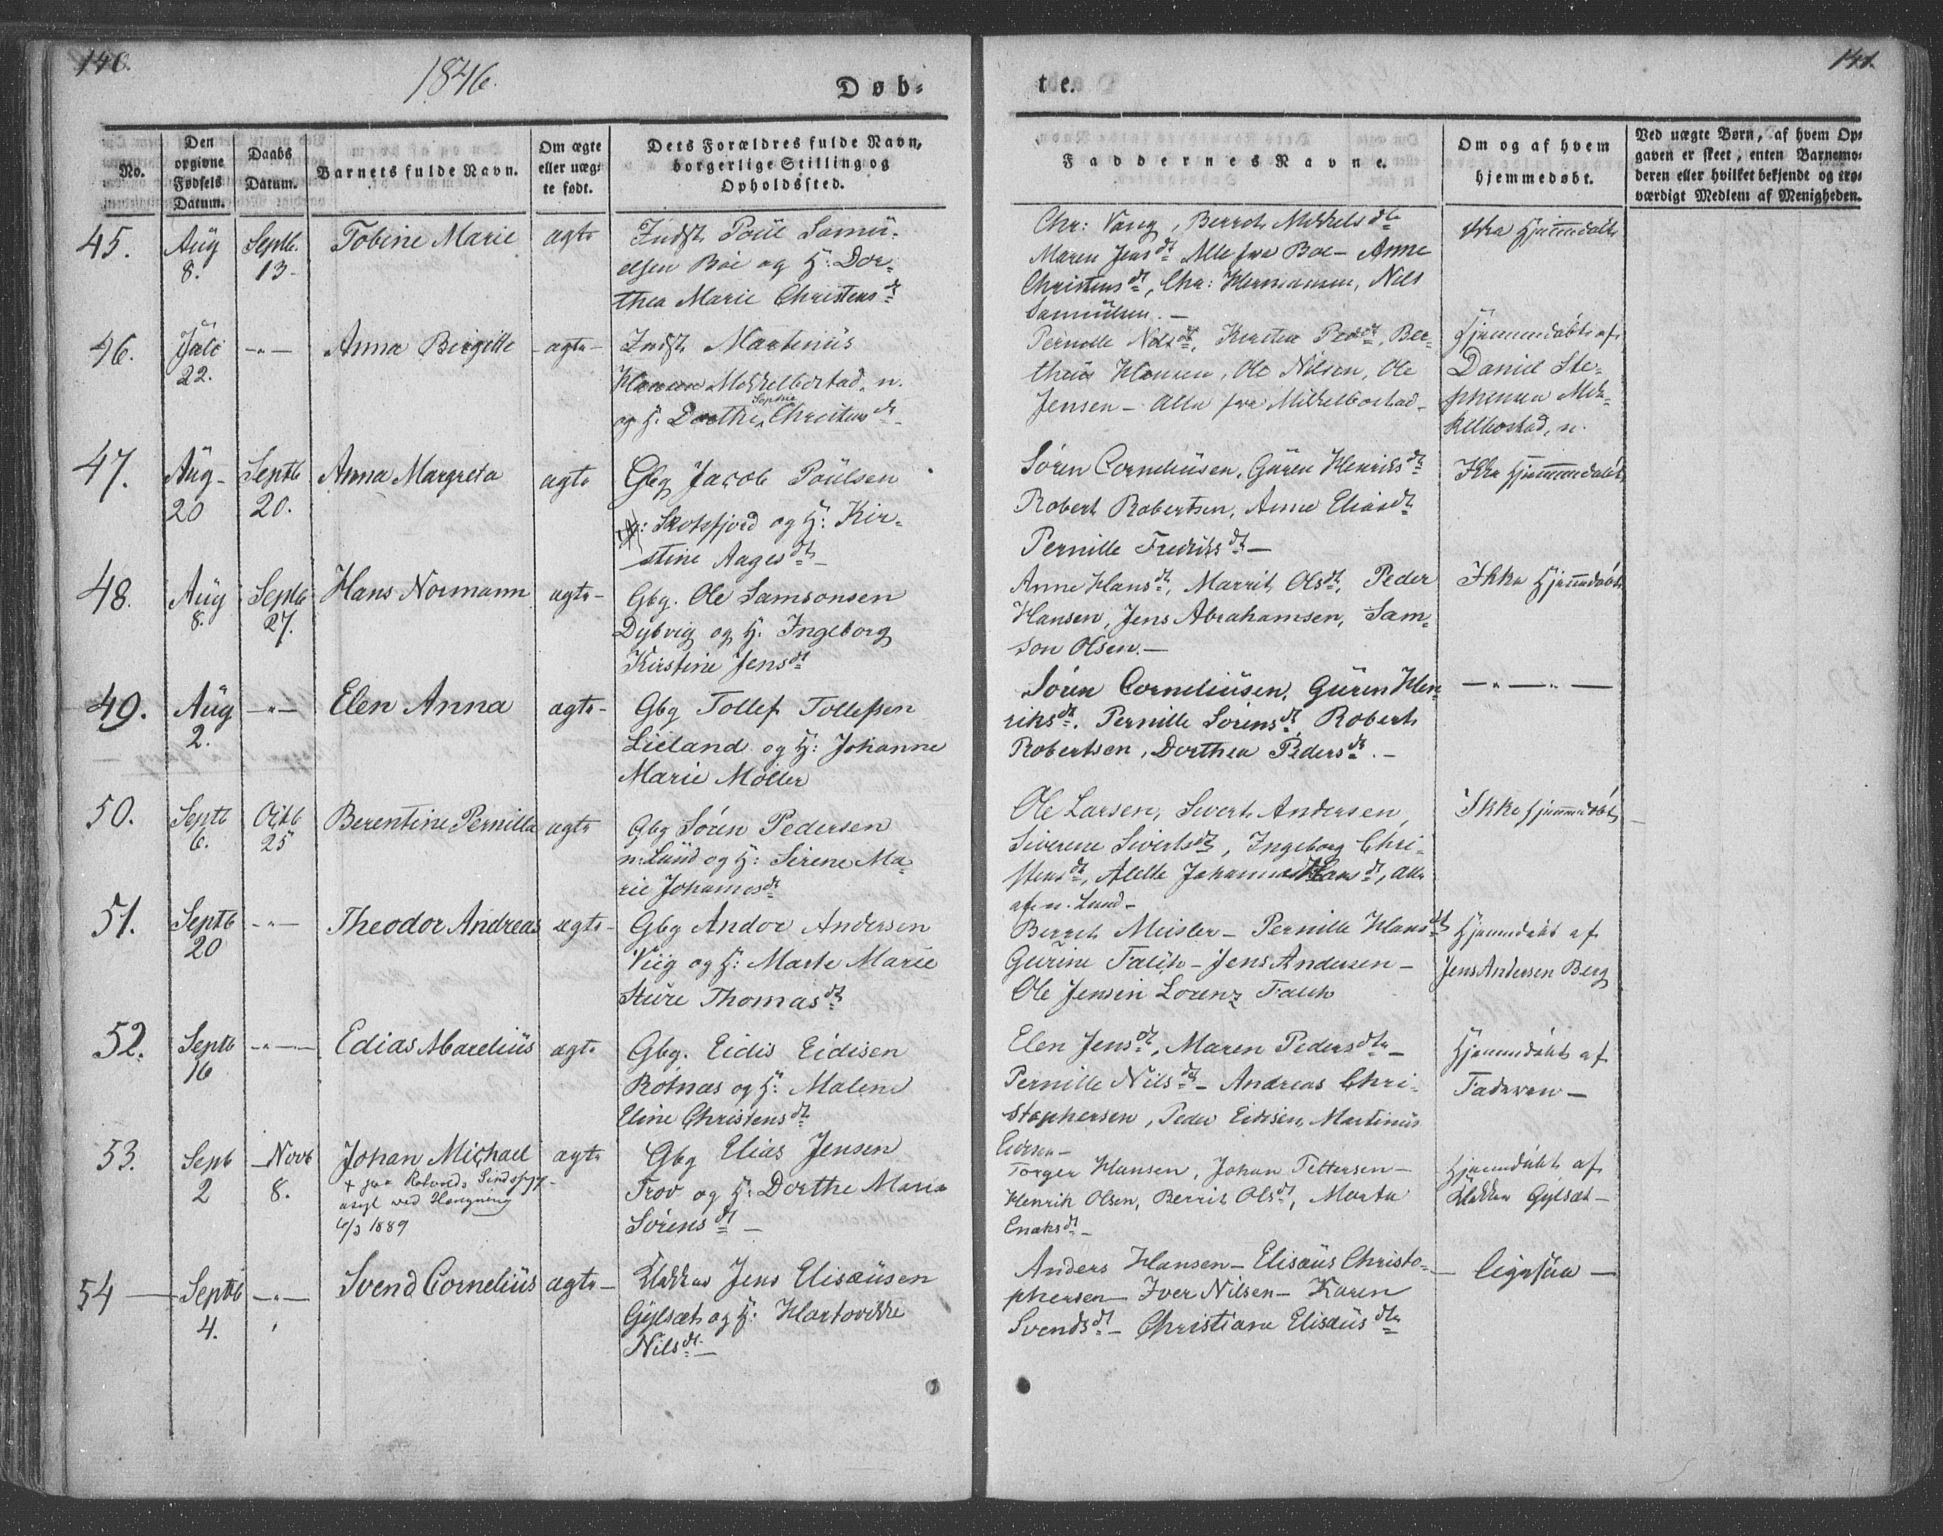 140.
1846.
Døb-
te.
141.
No.
Den opgivne Fødsels Datum.
Daabs Datum.
Barnets fulde Navn.
Om ægte eller uæg-
te født.
Dets Forældres fulde Navn,
borgerlige Stilling og
Opholdssted.
Faddernes Navne.
Om og af hvem
hjemmedøbt.
Ved uægte Børn, af hvem Op-
gaven er skeet, enten Barnemo-
deren eller hvilket bekjendt og tro-
værdigt Medlem af Menigheden.
45. Aug 8. Septb 13. Tobine Marie ægte
Indst Poul Samu-
elsen Boe og H: Dor-
thea Marie Christensdt
Chr: Vang, Berret Mikkelsdtr
Maren Jensdt Alle fra Boe - Anne
Christensdt, Chr: Hermansen, Nils
Samuelsen. -
ikke hjemmedøbt
46. Juli 22. -"- Anna Birgitte ægte
Indst Martinus
Hansen Mikkelbostad, n.
og H. Dorthe Sophie Christensdt
Pernille Nilsdt, Kirsten Pedsdt, Ber-
theus Hansen, Ole Nilsen, Ole
Jensen - Alle fra Mikkelbostad
Hjemmedøbt af
Daniel Ste-
phensen Mik-
kelbostad, n.
47. Aug 20 Septb 20. Anna Margreta ægte
Gbg Jacob Poulsen
Skotsfjord og H: Kir-
stine Aagesdt
Søren Corneliusen, Guren Henriksdt
Robert Robertsen, Anne Eliasdt
Pernille Fredriksdt -
Ikke hjemmedøbt
48. Aug 8. Septb 27. Hans Normann ægte
Gbg. Ole Samsonsen
Dybvig og H. Ingeborg
Kirstine Jensdt
Anne Hansdt, Marrit Olsdt, Peder
Hansen, Jens Abrahamsen, Sam-
son Olsen. -
Ikke hjemmedøbt
49. Aug 2. -"- Elen Anna ægte
Gbg Tollef Tollefsen
Lieland og H: Johanne
Marie Møller
Søren Corneliusen, Guren Hen-
riksdt. Pernille Sørensdt Robert
Robertsen, Dorthea Pedersdt. -
-"-"-
50. Septb 6. Octb 25 Berentine Pernilla ægte
Gbg Søren Pedersen
n: Lund og H: Sirene Ma-
rie Johannesdt
Ole Larsen, Sivert Andersen,
Siverene Sivertsdt, Ingeborg Chri-
stensdt, Alette Hansdt, alle
af n. Lund -
Ikke hjemmedøbt
51. Septb 20 -"- Theodor Andreas ægte
Gbg Andor Andersen
Viig og H: Marte Marie
Sture Thomasdt
Berret Meisler - Pernille Hansdt
Gurine Falch - Jens Andersen -
Ole Jensen Lorenz Falch
Hjemmedøbt af
Jens Andersen Berg
52. Septb 16 -"- Edias Marelius ægte
Gbg. Eidis Eidisen
Rotnæs og H: Malene
Eline Christensdt
Elen Jensdt, Maren Pedersdtr -
Pernille Nilsdt - Andreas Chri-
stophersen, Peder Eidisen, Martinus
Eidisen -
Hjemmedøbt af
Faderen -
53. Septb 2 Novb 8. Johan Michael ægte
+ paa Rotvolds Sindssyge-
asyl ved Hængning
6/3 1889
Gbg Elias Jensen
Trov og H: Dorthe Maria
Sørensdt -
Torger Hansen, Johan Pettersen -
Henrik Olsen, Berrit Olsdt, Marta
Enoksdt -
Hjemmedøbt af
Klokker Gylset -
54 Septb 4. -"- Svend Cornelius ægte
Klokker Jens Elisæusen
Gylset og H: Hartvikke
Nilsdt -
Anders Hansen - Elisæus Christo-
phersen - Iver Nilsen - Karen
Svendsdt - Christiane Elisæusdtr
ligesaa -